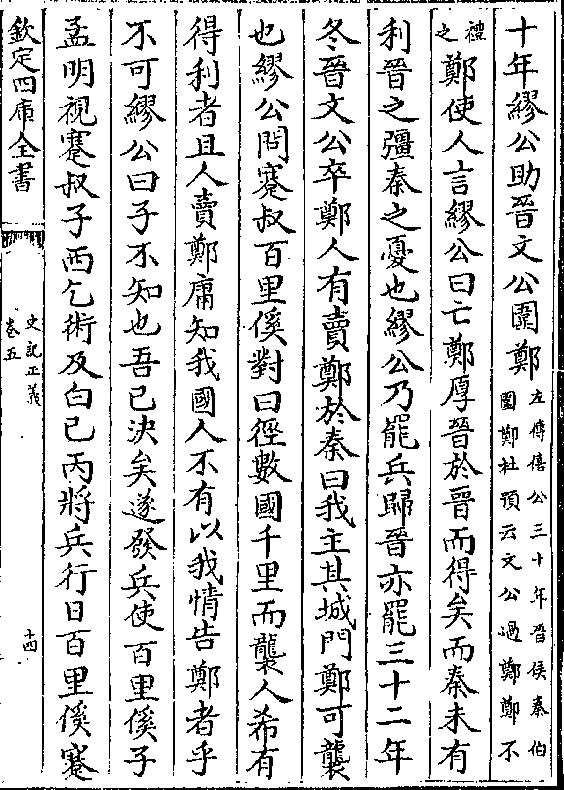 十年繆公助晉文公圍鄭左傳僖公三十年晉侯秦伯圍鄭杜預云文公過鄭鄭不
禮之鄭使人言繆公曰亡鄭厚晉於晉而得矣而秦未有
利晉之彊秦之憂也繆公乃罷兵歸晉亦罷三十二年
冬晉文公卒鄭人有賣鄭於秦曰我主其城門鄭可襲
也繆公問蹇叔百里傒對曰徑數國千里而襲人希有
得利者且人賣鄭庸知我國人不有以我情告鄭者乎
不可繆公曰子不知也吾已決矣遂發兵使百里傒子
孟明視蹇叔子西乞術及白已丙將兵行日百里傒蹇
欽定四庫全書
史記正義
卷五
十四